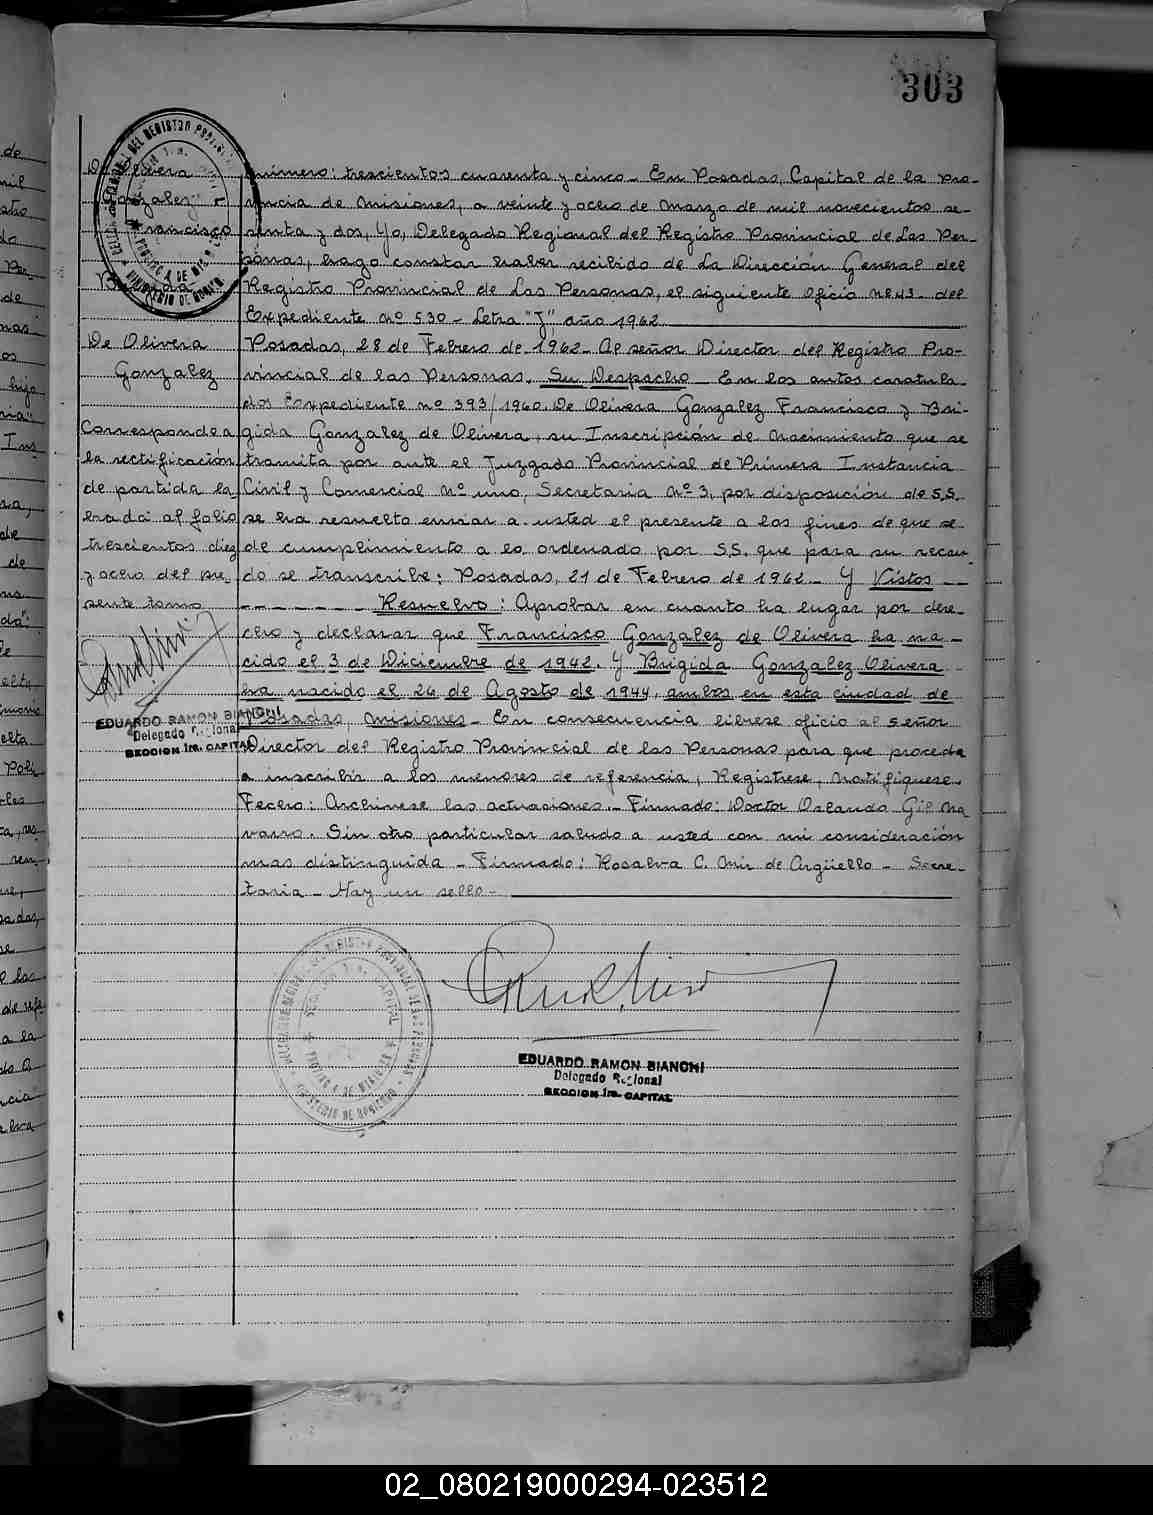 303
De Olivera
Gonzalez
Francisco
De Olivera
Gonzalez
Corresponde a
la rectificación
de partida la
brada al folio
trescientos diez
y ocho del pre-
sente tomo
EDUARDO RAMON BIANCHI
Delegado Regional
SECCION 1ra. CAPITAL
Número: trescientos cuarenta y cinco_ En Posadas, Capital de la Pro-
vincia de Misiones, a veinte y ocho de Marzo de mil novecientos se-
senta y dos, Yo, Delegado Regional del Registro Provincial de Las Per-
sonas, hago constar haber recibido de La Dirección General del
Registro Provincial de Las Personas, el siguiente Oficio Nº 43 del
Expediente Nº 530 - Letra "J", año 1962
Posadas, 28 de Febrero de 1962_ Al señor Director del Registro Pro-
vincial de las Personas. Su Despacho_ En los autos caratula-
dos Expediente nº 393/1960. De Olivera Gonzalez Francisco y Bri-
gida Gonzalez de Olivera, su Inscripción de Nacimiento que se
tramita por ante el Juzgado Provincial de Primera Instancia
Civil y Comercial Nº uno, Secretaria Nº 3, por disposición de S.S.
se ha resuelto enviar a usted el presente a los fines de que se
de cumplimiento a lo ordenado por S.S. que para su recau
do se transcribe: Posadas, 21 de Febrero de 1962_ Y Vistos --
- - - - - - - Resuelvo: Aprobar en cuanto ha lugar por dere-
cho y declarar que Francisco Gonzalez de Olivera ha na-
cido el 3 de Diciembre de 1942. Y Brigida Gonzalez Olivera
ha nacido el 26 de Agosto de 1944, ambos en esta ciudad de
Posadas, Misiones_ En consecuencia librese oficio al señor
Director del Registro Provincial de las Personas para que proceda
a inscribir a los menores de referencia, Registrese, Notifiquese.
Fecho: Archivese las actuaciones._ Firmado: Doctor Orlando Gil Na
varro. Sin otro particular saludo a usted con mi consideración
mas distinguida - Firmado: Rosalva C. Mir de Argüello - Secre-
taria - Hay un sello -
EDUARDO RAMON BIANCHI
Delegado Regional
SECCION 1ra. CAPITAL
02_080219000294-023512